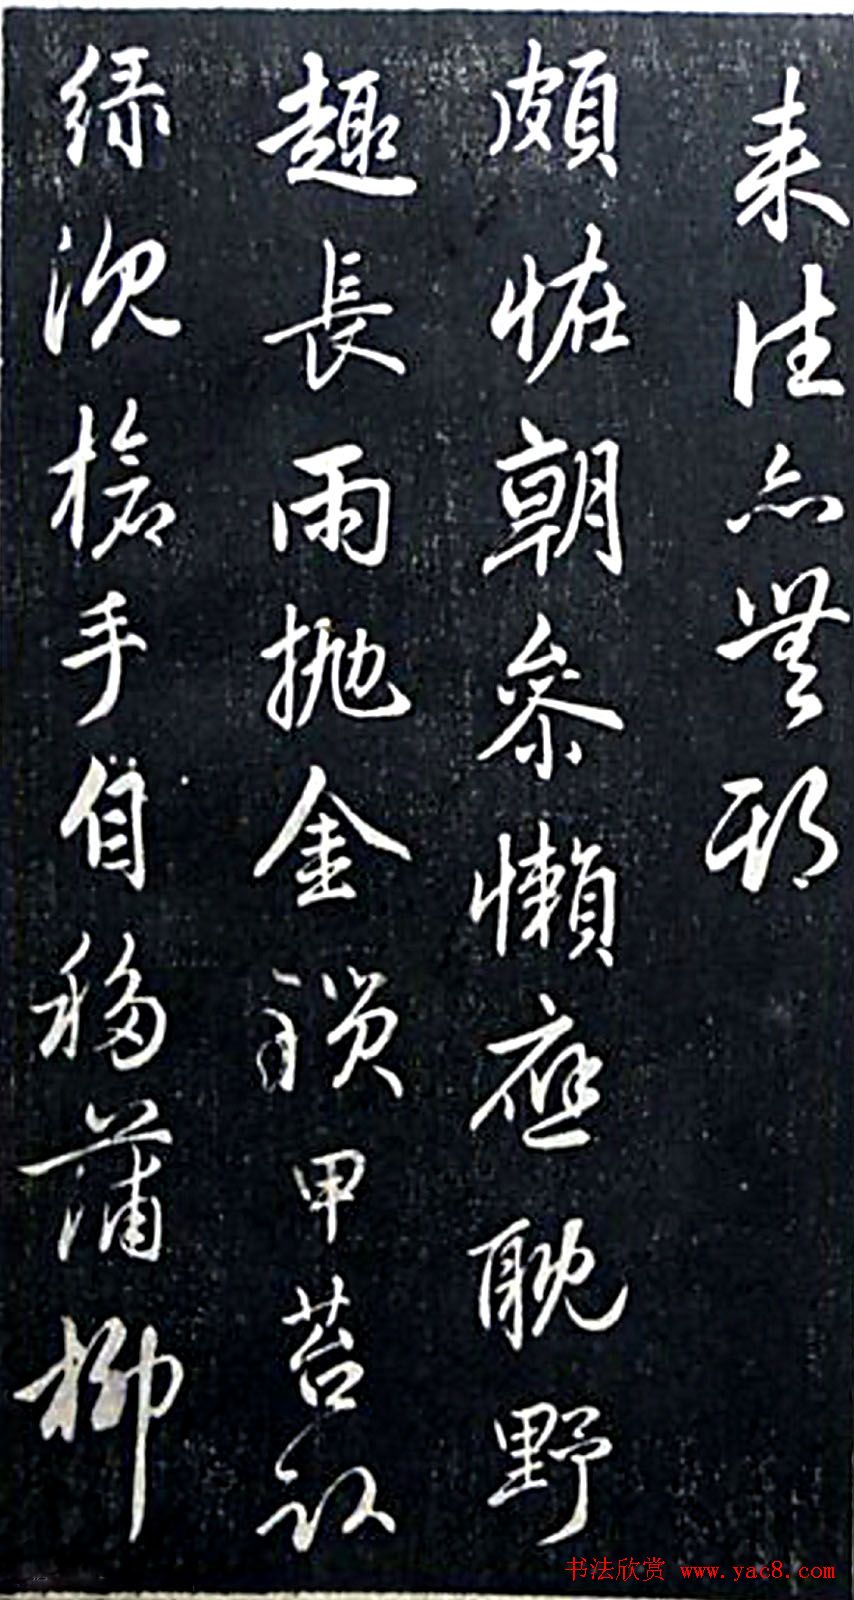 来往亦無期
頗恠朝參懶應耽野
趣長雨抛金鎖甲苔卧
綠沉槍手自移蒲柳
书法欣赏 www.yac8.com